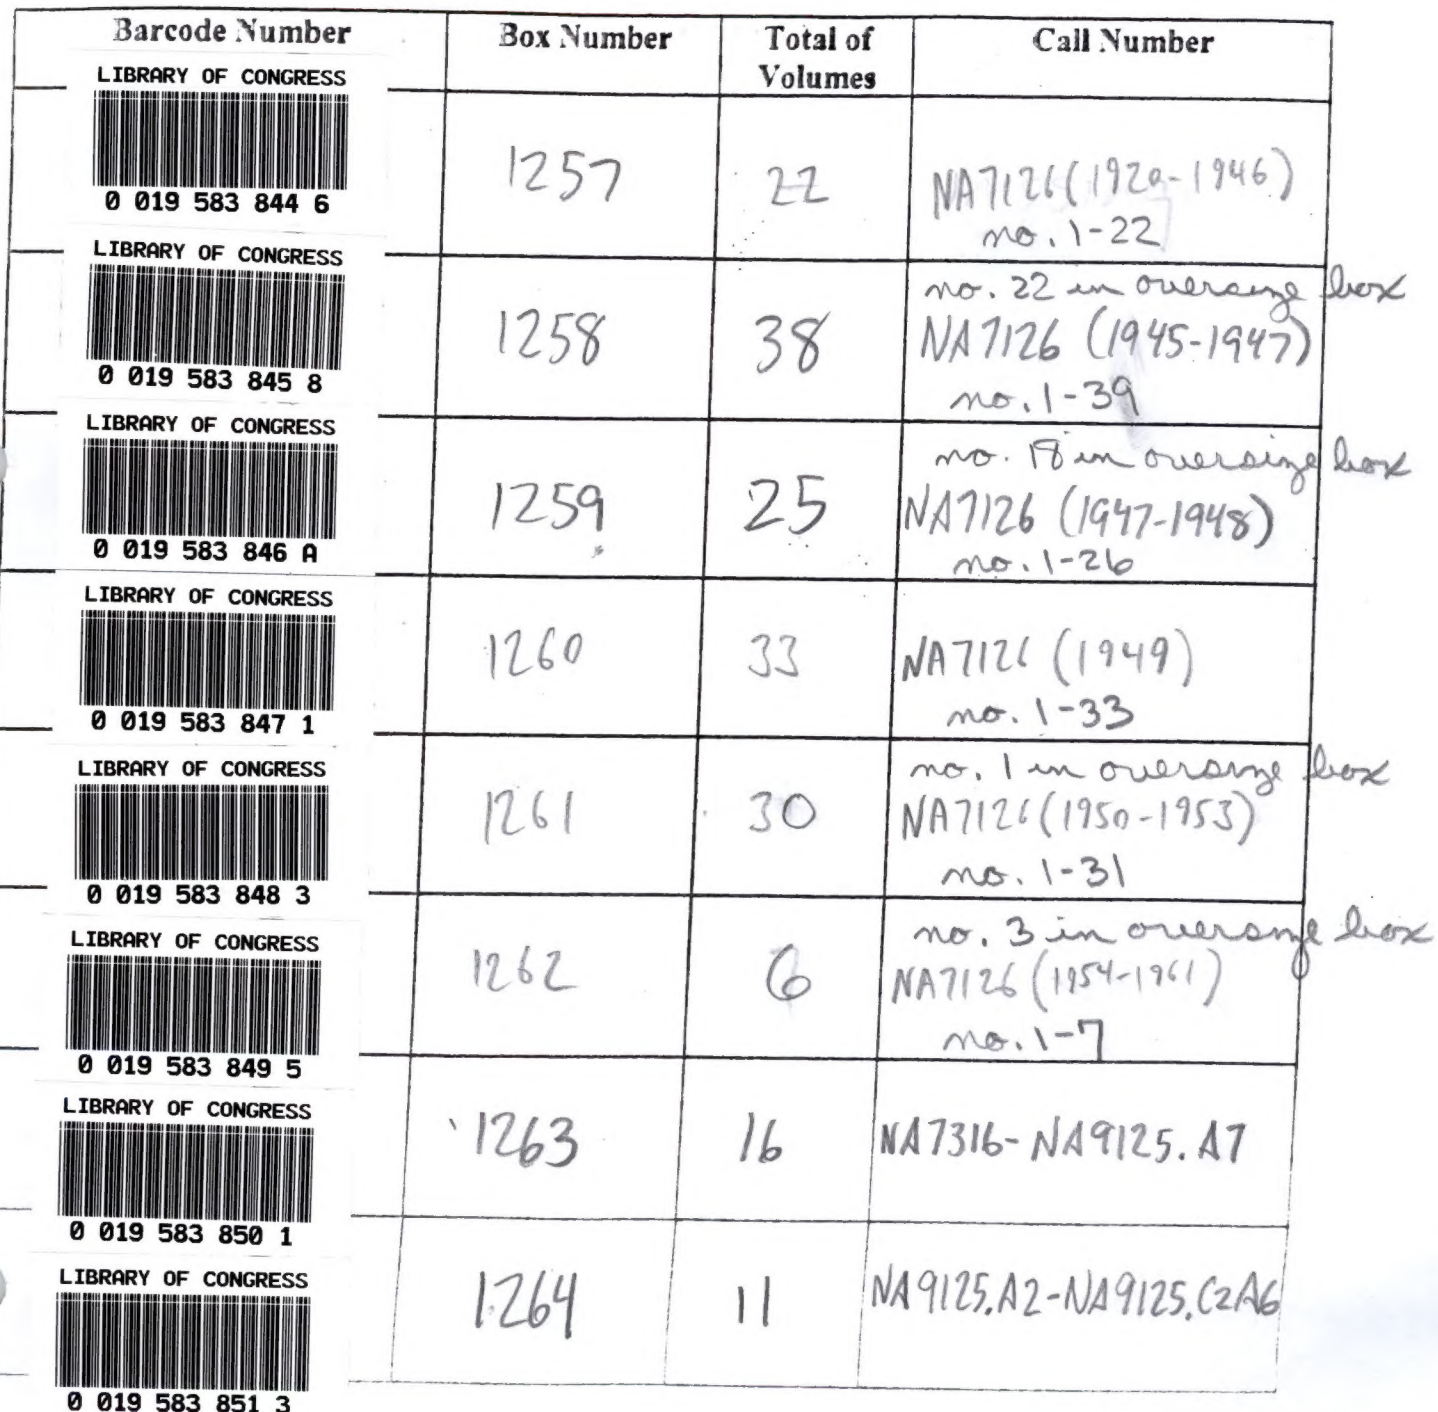 Barcode Number Box Number Total of Volumes Call Number
LIBRARY OF CONGRESS
0 019 583 844 6
1257
22
NA7126 (1920-1946)
no. 1-22
LIBRARY OF CONGRESS
0 019 583 845 8
1258
38
no. 22 in oversize box
NA7126 (1945-1947)
no. 1-39
LIBRARY OF CONGRESS
0 019 583 846 A
1259
25
no. 18 in oversize box
NA7126 (1947-1948)
no. 1-26
LIBRARY OF CONGRESS
0 019 583 847 1
1260
33
NA7126 (1949)
no. 1-33
LIBRARY OF CONGRESS
0 019 583 848 3
1261
30
no. 1 in oversize box
NA7126 (1950-1953)
no. 1-31
LIBRARY OF CONGRESS
0 019 583 849 5
1262
6
no. 3 in oversize box
NA7126 (1954-1961)
no. 1-7
LIBRARY OF CONGRESS
0 019 583 850 1
1263
16
NA7316-NA9125.A7
LIBRARY OF CONGRESS
0 019 583 851 3
1264
11
NA9125.A2-NA9125.C2A6